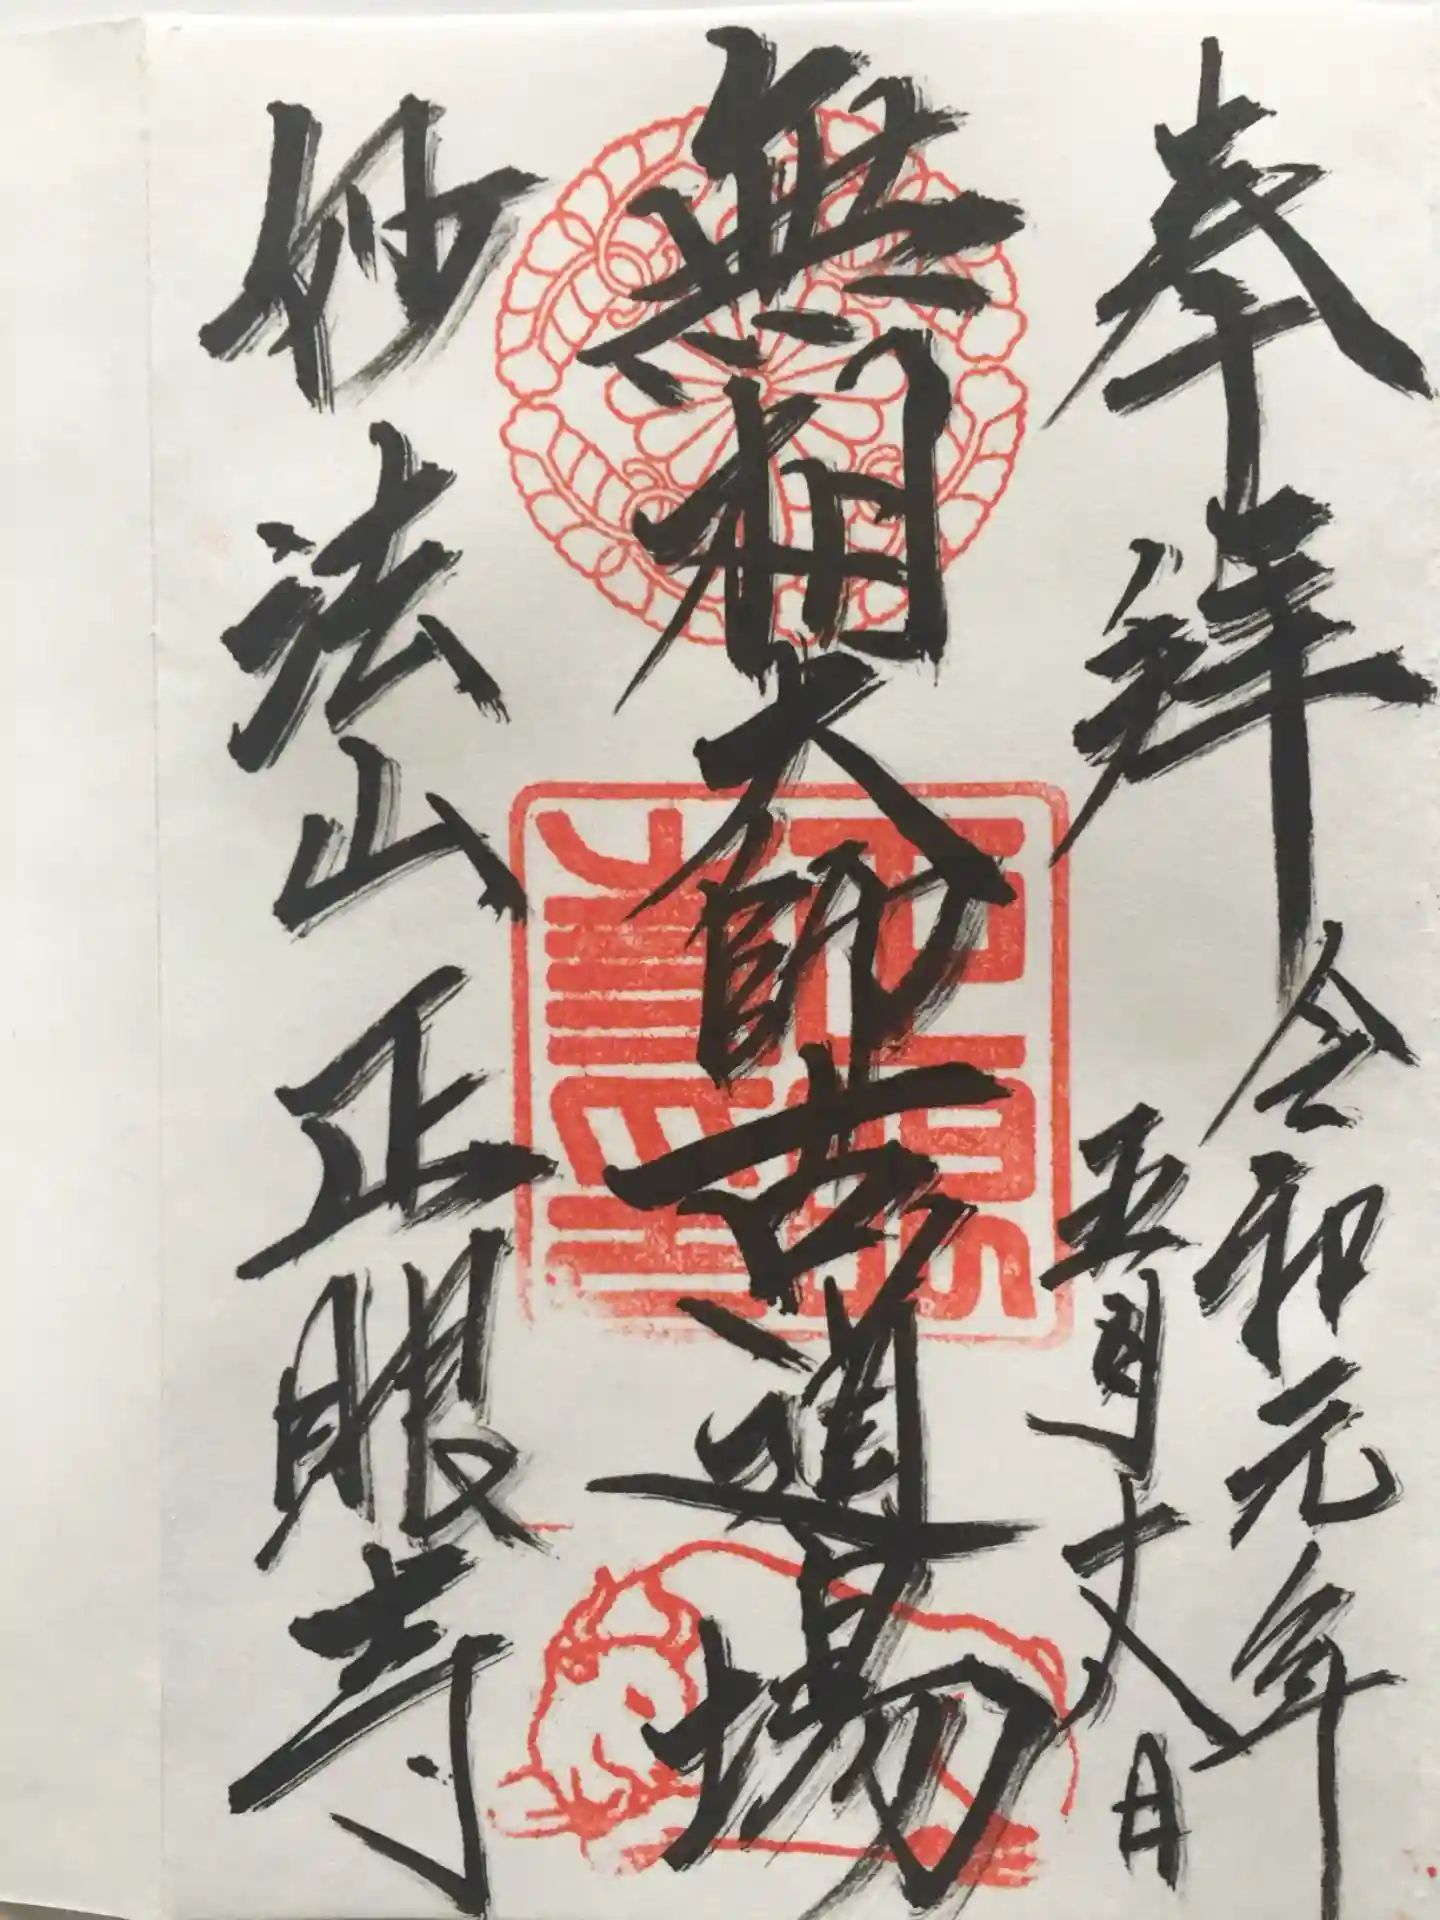 奉拝
令和元年
五月丈日
無相大師古道場
妙法山正眼寺